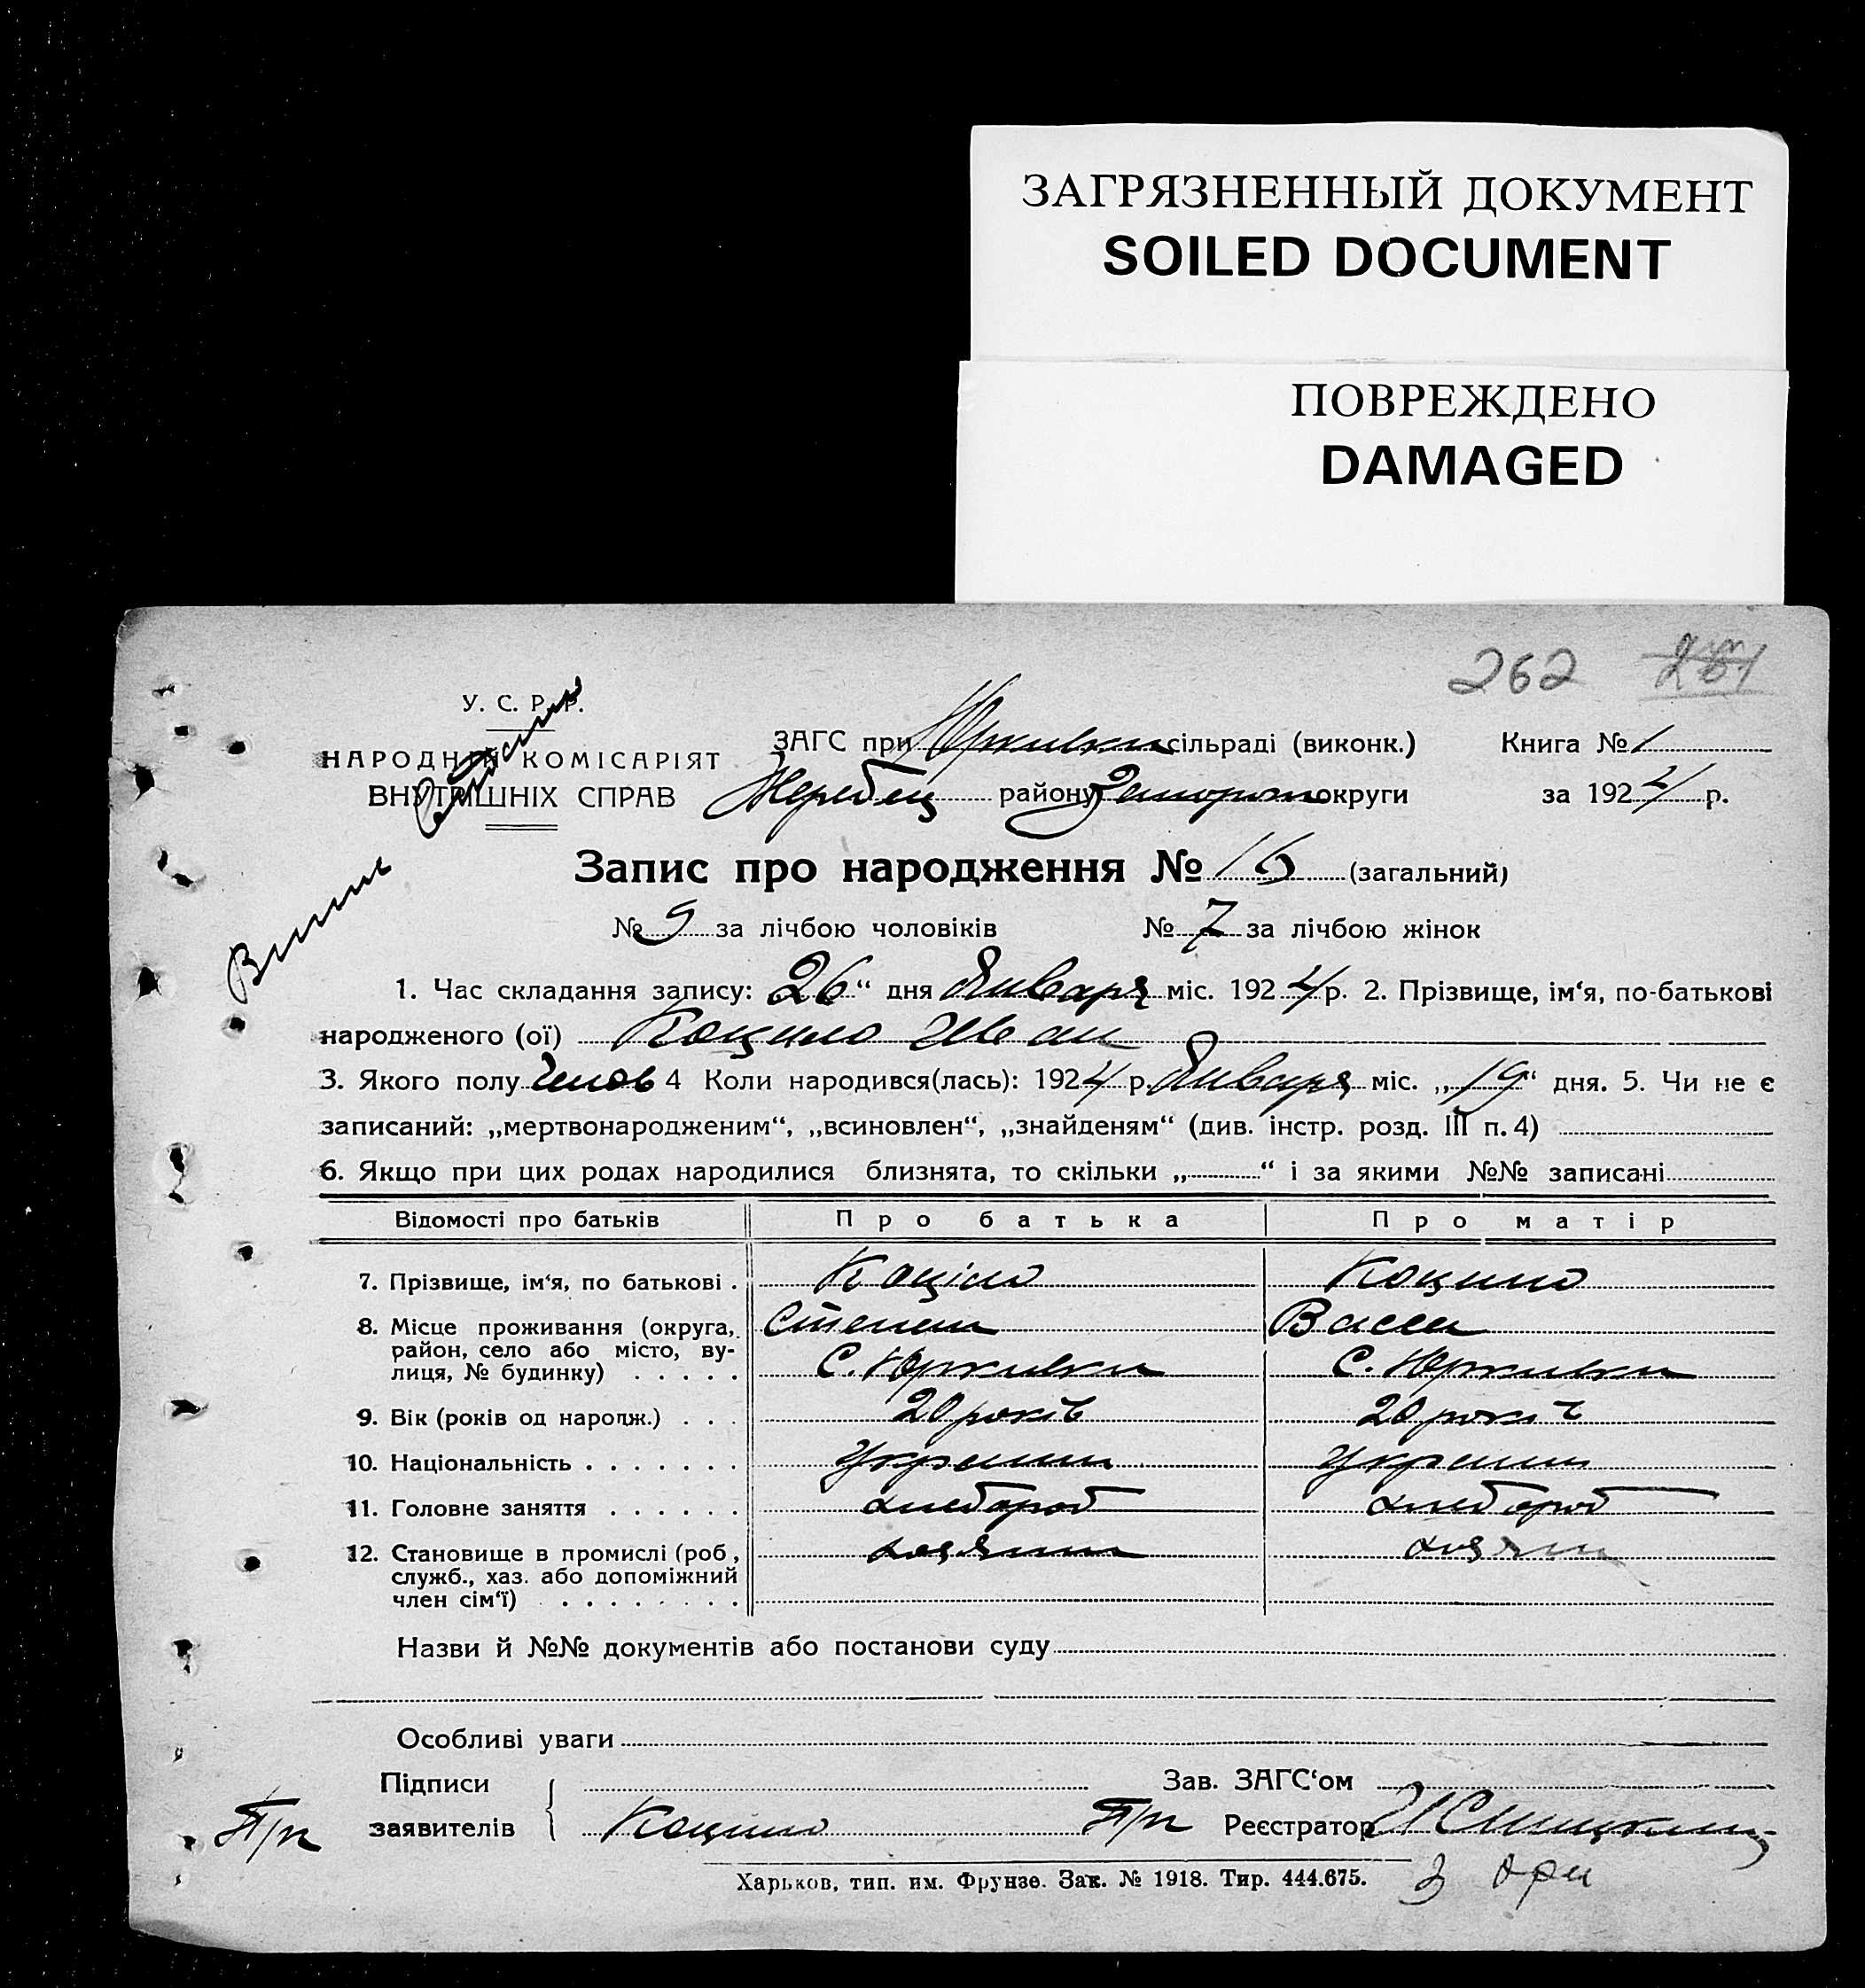 ЗАГРЯЗНЕННЫЙ ДОКУМЕНТ
SOILED DOCUMENT
ПОВРЕЖДЕНО
DAMAGED
262
У. С. Р. Р.
НАРОДНІЙ КОМІСАРІЯТ
ВНУТРІШНІХ СПРАВ
ЗАГС при Юркивки сільраді (виконк.) Книга № 1
Жеребец району Запорож округи за 1924 р.
Запис про народження № 16 (загальний)
№ 9 за лічбою чоловіків № 7 за лічбою жінок
1. Час складання запису: 26“ дня Января міс. 1924 р. 2. Прізвище, ім‘я, по-батькові
народженого (ої) Коцило Иван
3. Якого полу Челов 4 Коли народився(лась): 1924 р. Января міс. „19“ дня. 5. Чи не є
записаний: „мертвонародженим“, „всиновлен“, „знайденям“ (див. інстр. розд. III п. 4)
6. Якщо при цих родах народилися близнята, то скільки „ “ і за якими №№ записані
Відомості про батьків Про батька Про матір
7. Прізвище, ім‘я, по батькові . Коціло Коцило
8. Місце проживання (округа, Степан Васса
район, село або місто, ву-
лиця, № будинку) . . . . . С. Юркивки С. Юркивки
9. Вік (років од народж.) . . . 20 років 20 років
10. Національність . . . . . . . Украин Украин
11. Головне заняття . . . . . . хлебороб хлебороб
12. Становище в промислі (роб., хозяин хозяин
служб., хаз. або допоміжний
член сім‘ї) . . . . . . . .
Назви й №№ документів або постанови суду
Особливі уваги
Підписи Зав. ЗАГС‘ом
заявителів Коцило Реєстратор
Харьков, тип. им. Фрунзе. Зак. № 1918. Тир. 444.675.